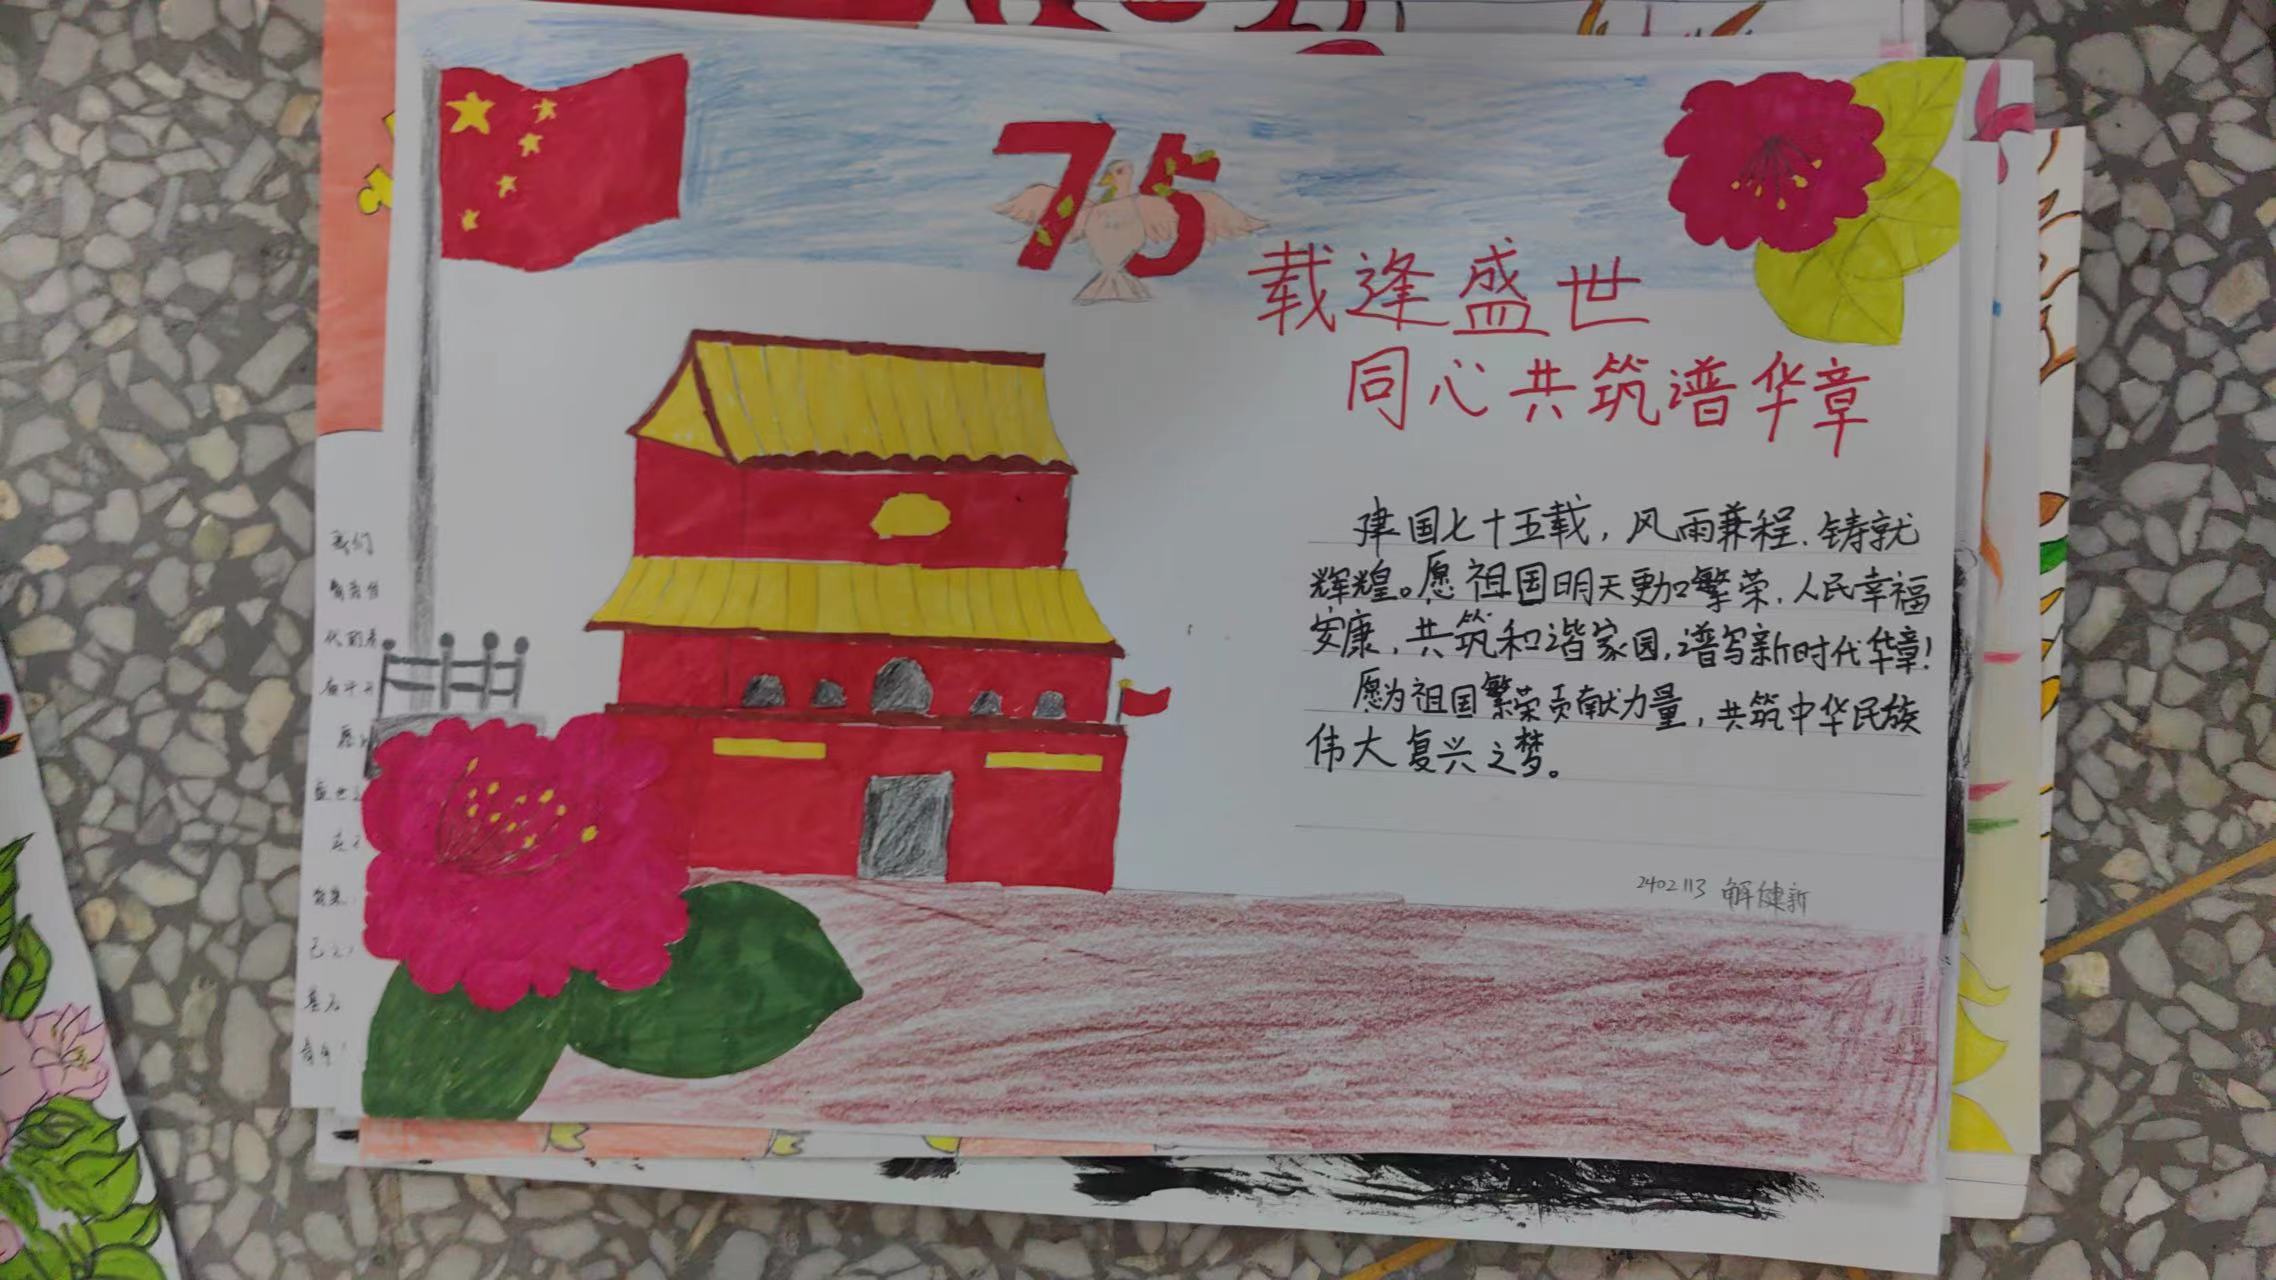 75
载逢盛世
同心共筑谱华章
建国七十五载，风雨兼程，铸就
辉煌。愿祖国明天更加繁荣，人民幸福
安康，共筑和谐家园，谱写新时代华章！
愿为祖国繁荣贡献力量，共筑中华民族
伟大复兴之梦。
2402113 解健新
我们